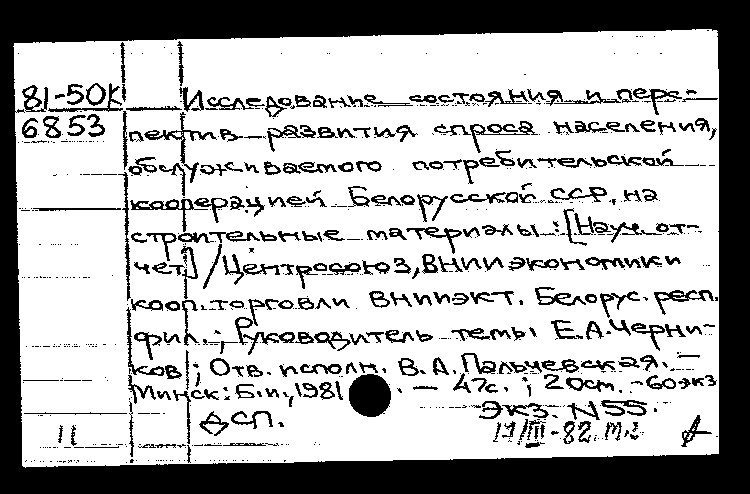 81-50К Исследование состояния и перс-
6853 пектив развития спроса населения,
обслуживаемого потребительской
кооперацией Белорусской ССР, на
строительные материалы : [Науч. от-
чет] / Центросоюз, ВНИИ экономики
кооп. торговли ВНИИЭКТ. Белорус. респ.
фил. ; Руководитель темы Е.А. Черни-
ков ; Отв. исполн. В.А. Пальчевская. —
Минск : Б.и., 1981 . — 47с. ; 20см. - 60 экз
ДСП. Экз. N 55.
11 17/III-82